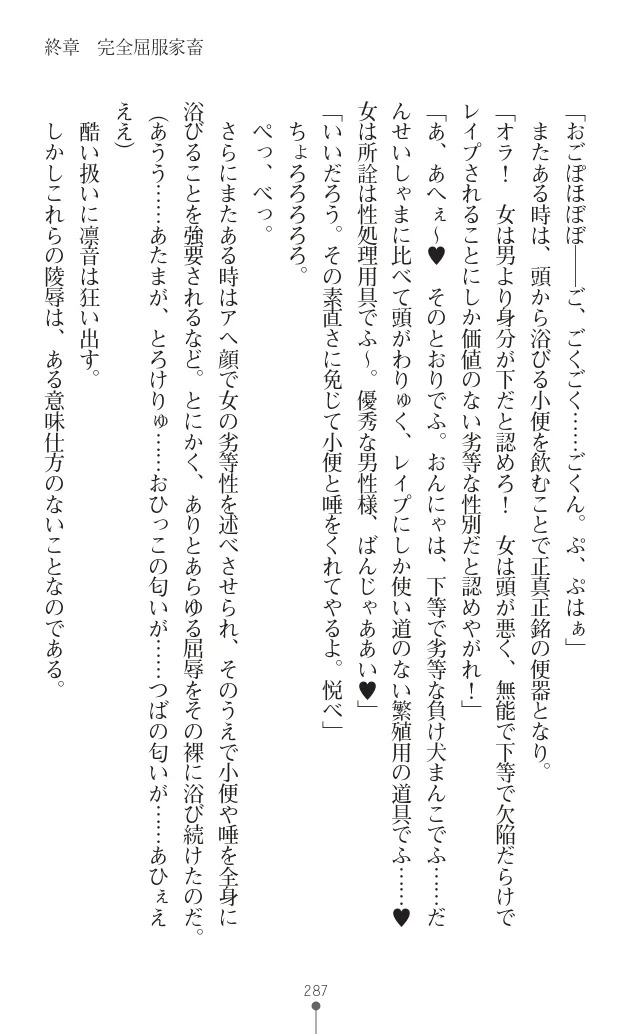 終章　完全屈服家畜
「おごぽほぼぼ――ご、ごくごく……ごくん。ぷ、ぷはぁ」
　またある時は、頭から浴びる小便を飲むことで正真正銘の便器となり。
「オラ！　女は男より身分が下だと認めろ！　女は頭が悪く、無能で下等で欠陥だらけで
レイプされることにしか価値のない劣等な性別だと認めやがれ！」
「あ、あへぇ～♥　そのとおりでふ。おんにゃは、下等で劣等な負け犬まんこでふ……だ
んせいしゃまに比べて頭がわりゅく、レイプにしか使い道のない繁殖用の道具でふ……♥
女は所詮は性処理用具でふ～。優秀な男性様、ばんじゃああい♥」
「いいだろう。その素直さに免じて小便と唾をくれてやるよ。悦べ」
　ちょろろろろろ。
　ぺっ、べっ。
　さらにまたある時はアヘ顔で女の劣等性を述べさせられ、そのうえで小便や唾を全身に
浴びることを強要されるなど。とにかく、ありとあらゆる屈辱をその裸に浴び続けたのだ。
（あうう……あたまが、とろけりゅ……おひっこの匂いが……つばの匂いが……あひぇえ
ええ）
　酷い扱いに凛音は狂い出す。
　しかしこれらの陵辱は、ある意味仕方のないことなのである。
287